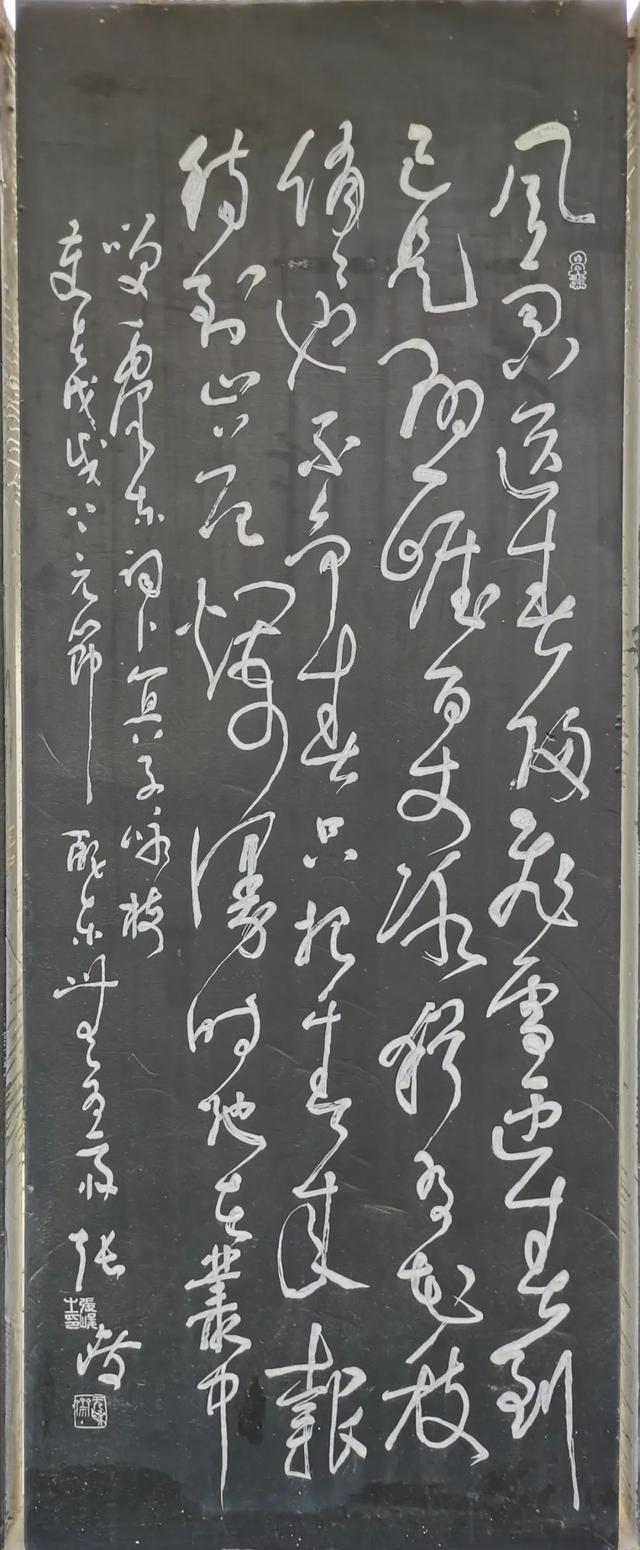 风雨送春归飞雪迎春到
已是悬崖百丈冰犹有花枝
俏々也不争春只把春来報
待到山花烂漫时她在叢中
笑 毛泽东词卜算子咏梅
岁在戊戌上元節 张